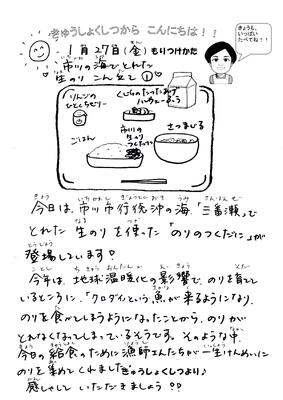 きゅうしょくしつから こんにちは！！
きょうも、
いっぱい
たべてね！！
1月27日(金)もりつけかた
市川の海でとれた
生のり こん立て①
りんごの
ひとくちゼリー
くじらのたつたあげ
ごはん
市川の
生のり
つくだに
さつまじる
今日は、市川市行徳沖の海「三番瀬」で
とれた 生のりを使った "のりのつくだに"が
登場しています？
今年は、地球温暖化の影響で、のりを育て
ているところに、「クロダイ」という魚が来るようになり、
のりを食べてしまうようになったことから、のりが
とれなくなってしまっているそうです。そのような中、
今日の給食のために漁師さんたちが一生けんめいに
のりを集めてくれました
ぎゅうしょくしつより♪
感しゃして いただきましょう??